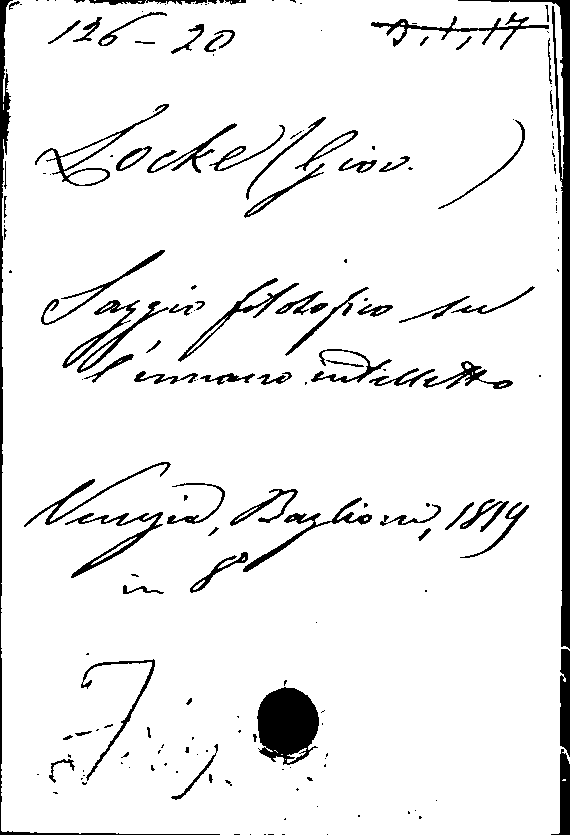 126-20 D, 1, 17
Locke (Giov. )
Saggio filosofico su
l'umano intelletto
Venezia, Baglioni, 1819
in 8º